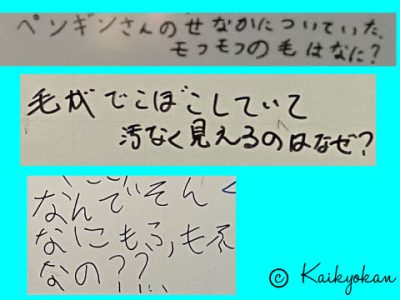 ペンギンさんのせなかについていた、
モフモフの毛はなに?
毛がでこぼこしていて
汚なく見えるのはなぜ?
なんでそん
なにもふもふ
なの??
© Kaikyokan